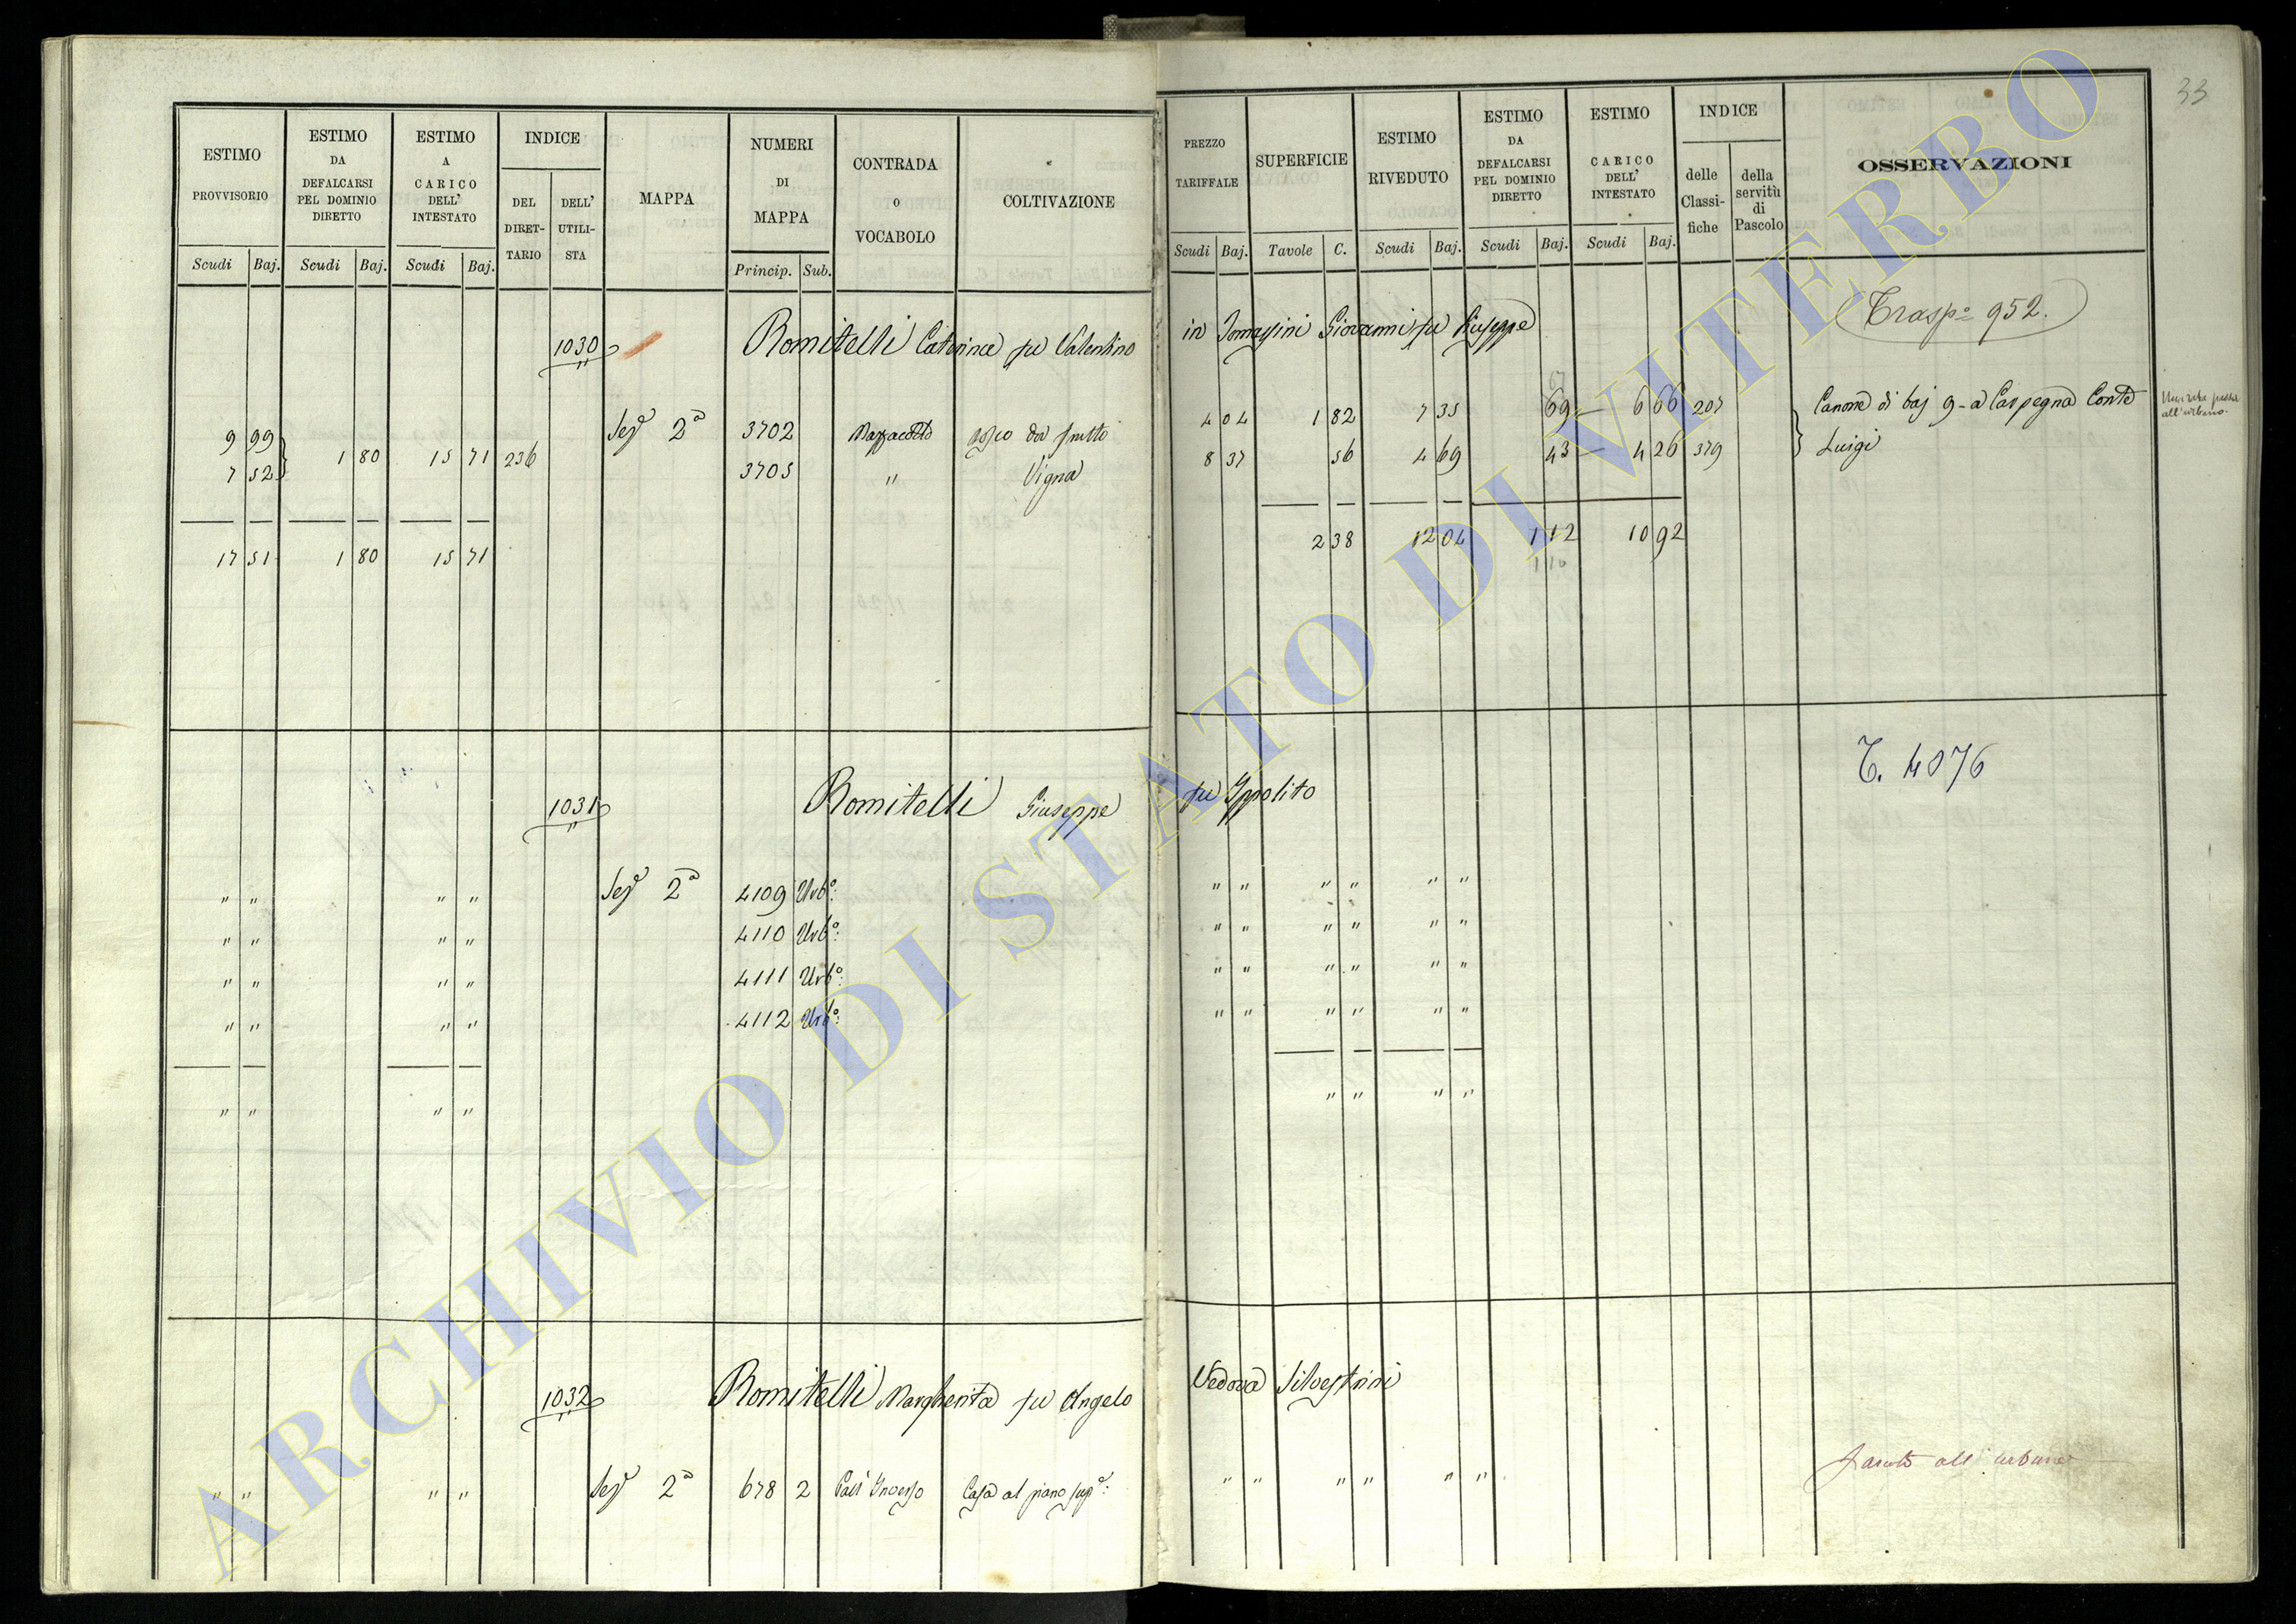 33
ESTIMO PROVVISORIO
ESTIMO DA DEFALCARSI PEL DOMINIO DIRETTO
ESTIMO A CARICO DELL' INTESTATO
INDICE
DEL DIRET-TARIO
DELL' UTILI-STA
MAPPA
NUMERI DI MAPPA
CONTRADA O VOCABOLO
COLTIVAZIONE
PREZZO TARIFFALE
SUPERFICIE
ESTIMO RIVEDUTO
ESTIMO DA DEFALCARSI PEL DOMINIO DIRETTO
ESTIMO CARICO DELL' INTESTATO
INDICE
delle Classi-fiche
della servitù di Pascolo
OSSERVAZIONI
Scudi Baj. Scudi Baj. Scudi Baj. Princip. Sub. Scudi Baj. Tavole C. Scudi Baj. Scudi Baj. Scudi Baj.
1030 Romitelli Caterina fu Valentino in Tomassini Giovanni fu Giuseppe Trasp° 952.
9 99 Sez° 2ª 3702 da frutto 4 04 1 82 7 35 69 6 66 207 Canone di baj 9 - a Carpegna Conte
7 52 1 80 15 71 236 3705 " Vigna 8 37 56 4 69 43 4 26 379 Luigi
17 51 1 80 15 71 2 38 12 04 1 12 10 92
1 10
all'urbano
1031 Romitelli Giuseppe fu Ippolito T. 4076
" " " " Sez° 2ª 4109 Urb°: " " " " " "
" " " " 4110 Urb°: " " " " " "
" " " " 4111 Urb°: " " " " " "
" " " " 4112 Urb°: " " " " " "
" " " " " " " "
1032 Romitelli Margherita fu Angelo Vedova Silvestrini
" " " " Sez° 2ª 678 2 Casa al piano sup°: " " " " " " all' urbano
ARCHIVIO DI STATO DI VITERBO